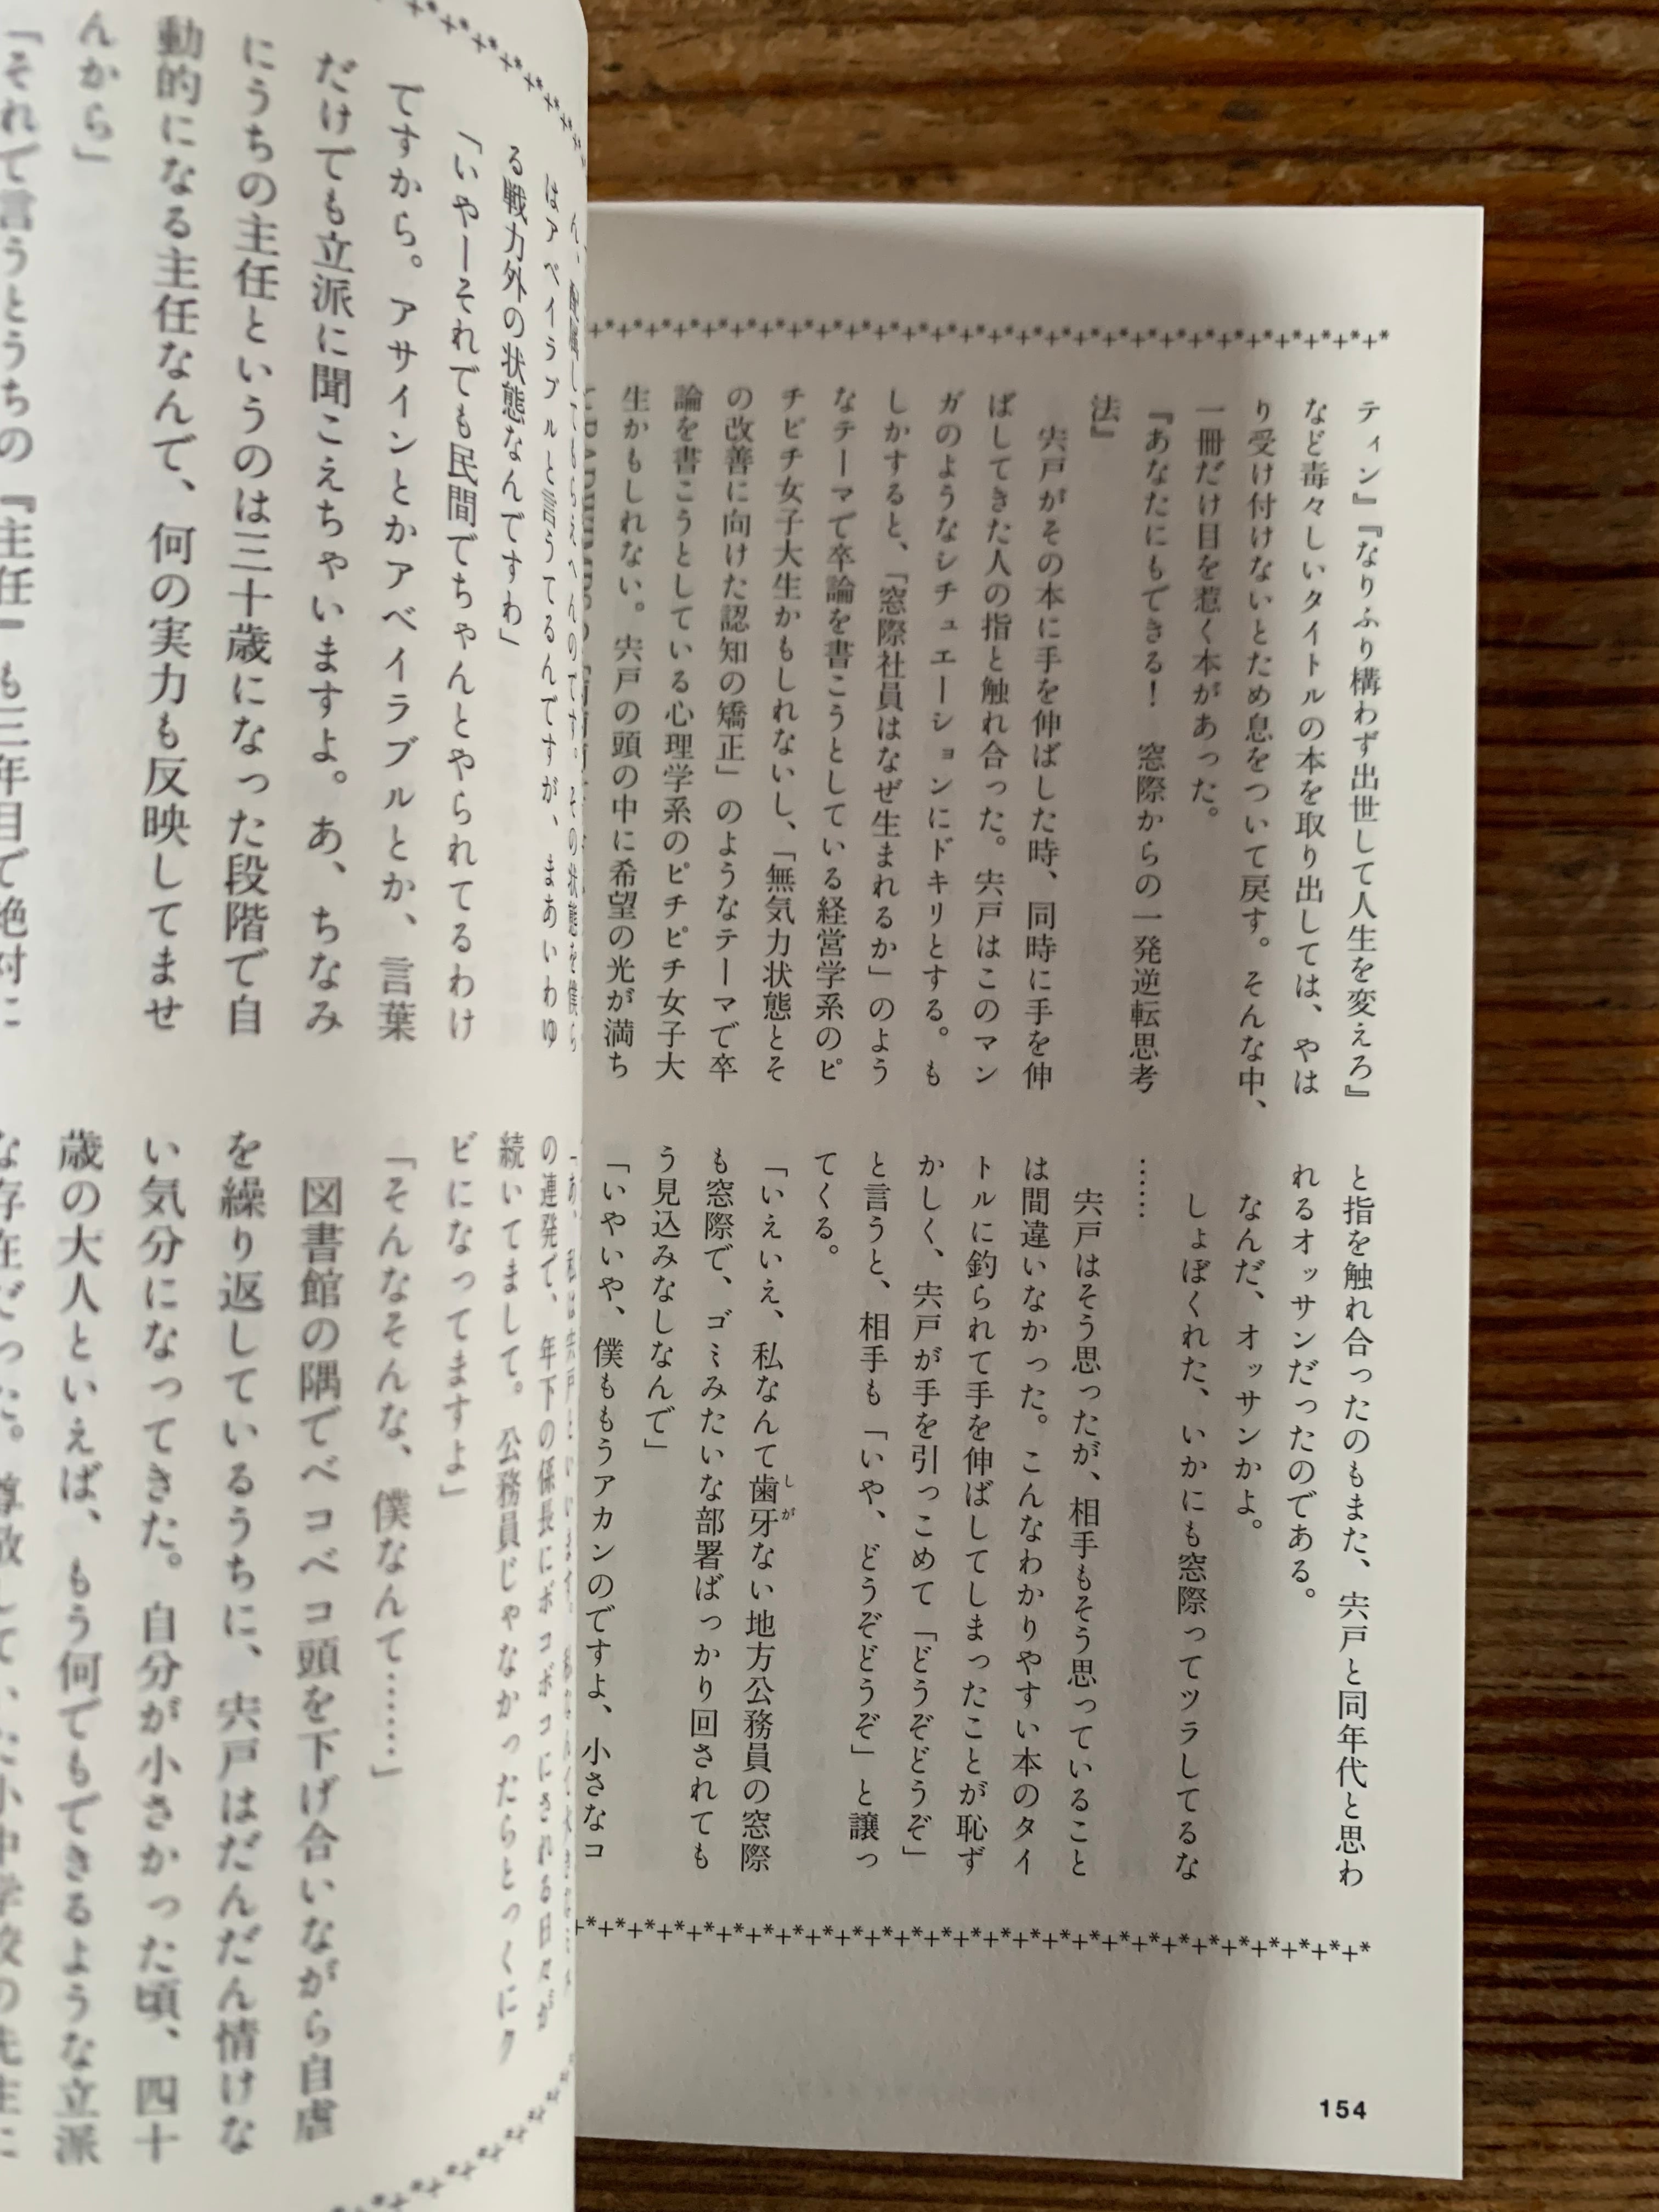 ティン』『なりふり構わず出世して人生を変えろ』
など毒々しいタイトルの本を取り出しては、やは
り受け付けないとため息をついて戻す。そんな中、
一冊だけ目を惹く本があった。
『あなたにもできる！　窓際からの一発逆転思考
法』
宍戸がその本に手を伸ばした時、同時に手を伸
ばしてきた人の指と触れ合った。宍戸はこのマン
ガのようなシチュエーションにドキリとする。も
しかすると、「窓際社員はなぜ生まれるか」のよう
なテーマで卒論を書こうとしている経営学系のピ
チピチ女子大生かもしれないし、「無気力状態とそ
の改善に向けた認知の矯正」のようなテーマで卒
論を書こうとしている心理学系のピチピチ女子大
生かもしれない。宍戸の頭の中に希望の光が満ち
と指を触れ合ったのもまた、宍戸と同年代と思わ
れるオッサンだったのである。
なんだ、オッサンかよ。
しょぼくれた、いかにも窓際ってツラしてるな
……
宍戸はそう思ったが、相手もそう思っていること
は間違いなかった。こんなわかりやすい本のタイ
トルに釣られて手を伸ばしてしまったことが恥ず
かしく、宍戸が手を引っこめて「どうぞどうぞ」
と言うと、相手も「いや、どうぞどうぞ」と譲っ
てくる。
「いえいえ、私なんて歯牙ない地方公務員の窓際
しが
も窓際で、ゴミみたいな部署ばっかり回されても
う見込みなしなんで」
「いやいや、僕ももうアカンのですよ、小さなコ
154
はアベイラブルと言うてるんですが、まあいわゆ
る戦力外の状態なんですわ」
「いやーそれでも民間でちゃんとやられてるわけ
ですから。アサインとかアベイラブルとか、言葉
だけでも立派に聞こえちゃいますよ。あ、ちなみ
にうちの主任というのは三十歳になった段階で自
動的になる主任なんで、何の実力も反映してませ
んから」
「それで言うとうちの『主任』も三年目で絶対に
の連発で、年下の係長にボコボコにされる日々が
続いてまして。公務員じゃなかったらとっくにク
ビになってますよ」
「そんなそんな、僕なんて……」
図書館の隅でペコペコ頭を下げ合いながら自虐
を繰り返しているうちに、宍戸はだんだん情けな
い気分になってきた。自分が小さかった頃、四十
歳の大人といえば、もう何でもできるような立派